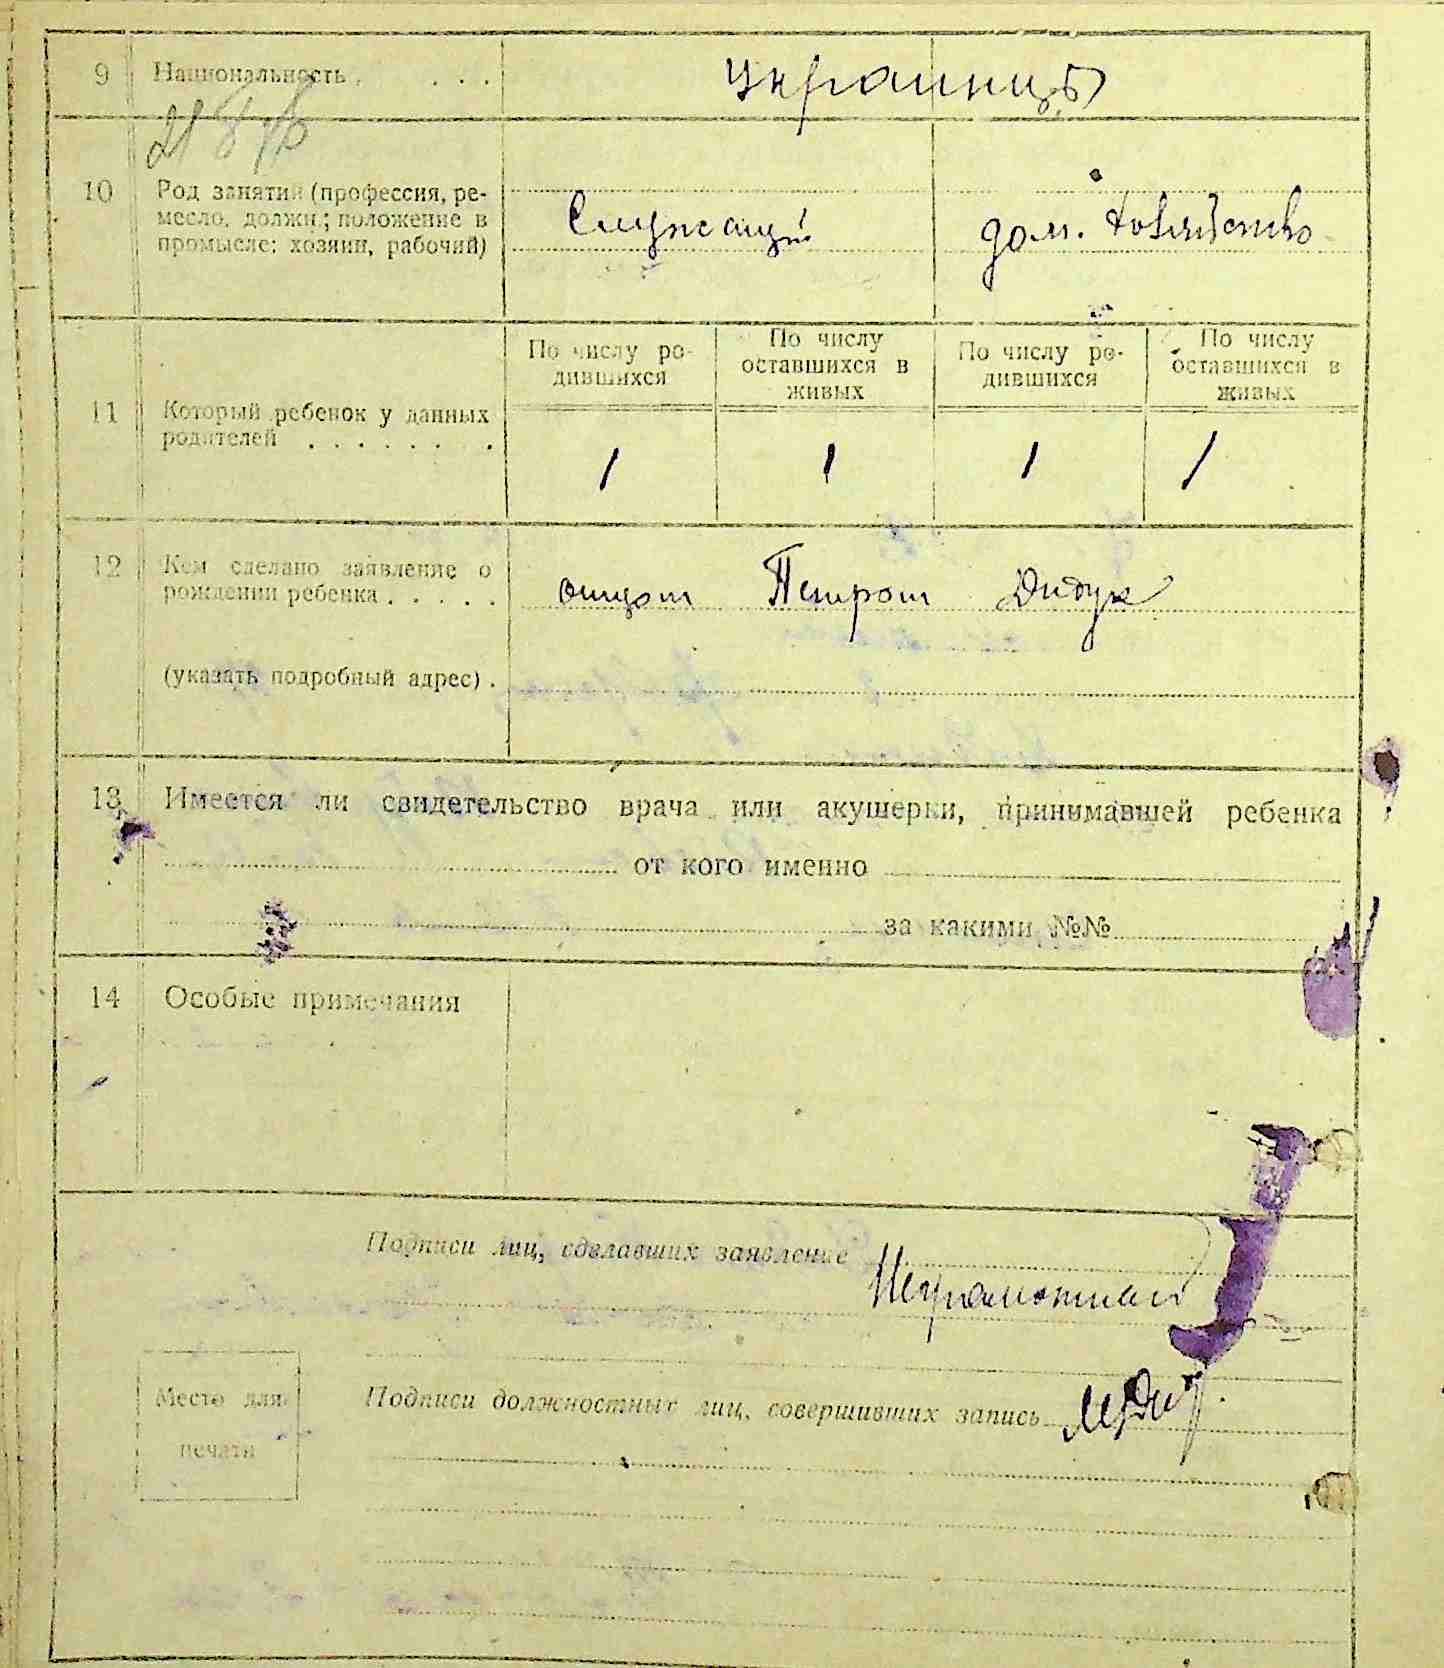 9 Национальность . . . . украинцы
10 Род занятий (профессия, ре-
месло, должн.; положение в
промысле: хозяин, рабочий)
Служащий дом. хозяйство
По числу ро-
дившихся
По числу
оставшихся в
живых
По числу ро-
дившихся
По числу
оставшихся в
живых
11 Который ребенок у данных
родителей . . . . . . .
1 1 1 1
12 Кем сделано заявление о
рождении ребенка . . . . . отцом Петром Дидук
(указать подробный адрес) .
13 Имеется ли свидетельство врача или акушерки, принимавшей ребенка
от кого именно
за какими №№
14 Особые примечания
Подписи лиц, сделавших заявление
Неграмотная
Место для
печати
Подписи должностных лиц, совершивших запись